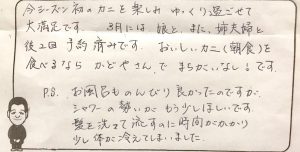 今シーズン初のカニを楽しみ ゆっくり過ごせて
大満足です。 3月には 娘と、また、姉夫婦と
後2回 予約済みです。 おいしいカニ(朝食)を
食べるなら かどやさんで まちがいなし!です。
P.S. お風呂ものんびり良かったのですが、
シャワーの勢いが もう少しほしいです。
髪を洗って 流すのに時間がかかり
少し体が冷えてしまいました。